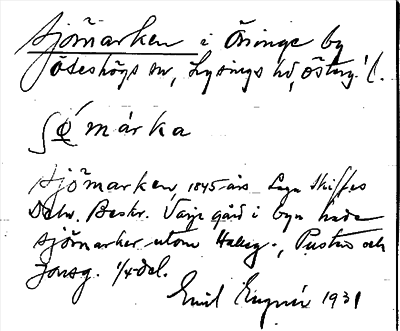 Sjömarken i Öninge by
Ödeshögs sn, Lysings hd, Österg. l.
ʃǿmárka
Sjömarken, 1845 års Laga Skiftes
Deln. Beskr. Varje gård i byn hade
sjömarker utom Halleg., Pustns och
Jonsg. 1/4 del.
Emil 1931